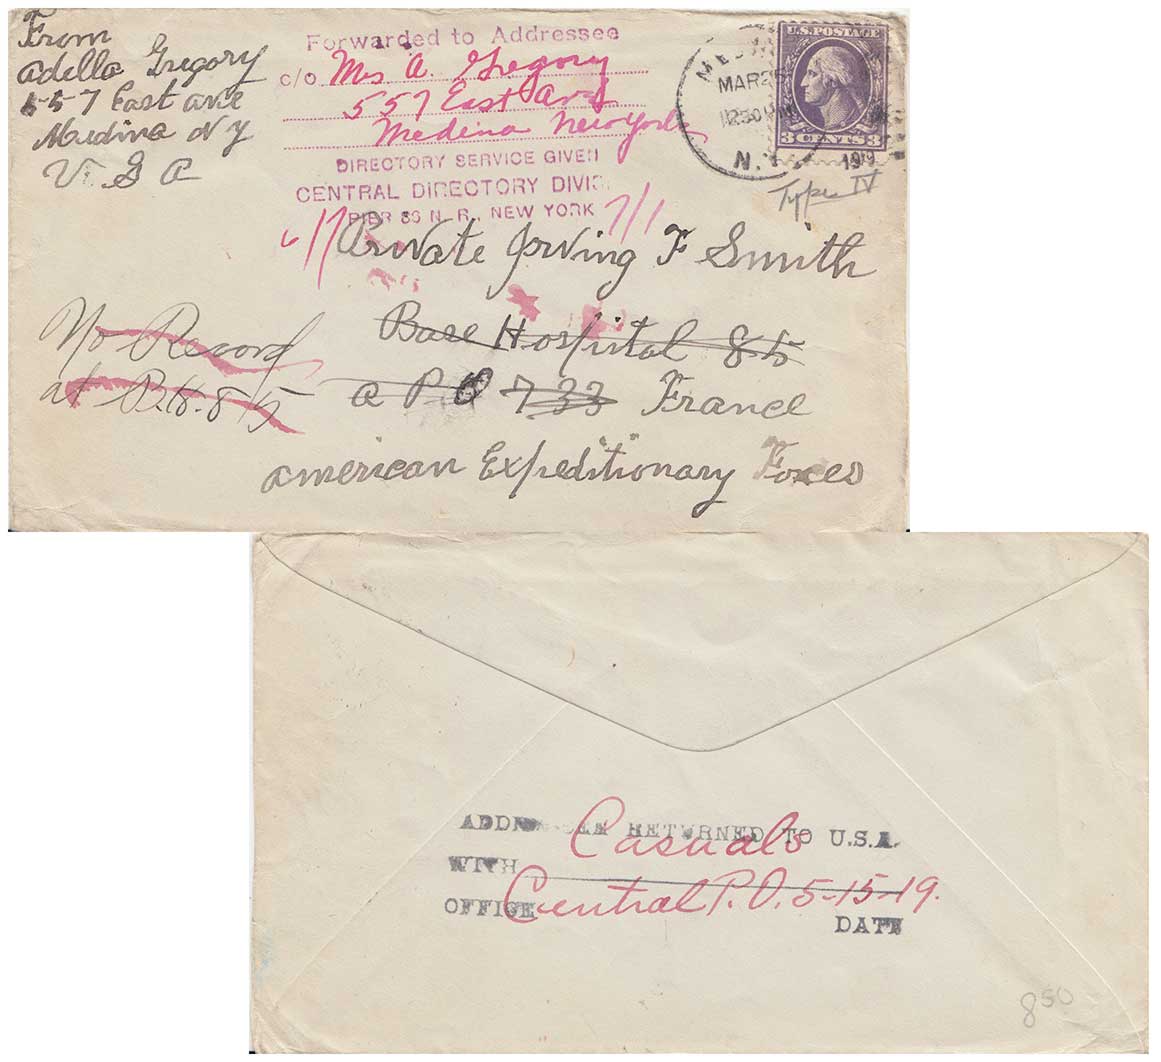 From
Adella Gregory
557 East Ave
Medina N Y
U. S A
Forwarded to Addressee
c/o Mrs A. Gregory
557 East Ave
Medina New York
DIRECTORY SERVICE GIVEN
CENTRAL DIRECTORY DIVIS
PIER 86 N. R., NEW YORK
6/17
7/1
MAR 25
1230 P
N.Y.
191
U.S. POSTAGE
3 CENTS 3
Type IV
Private Irving F Smith
Base Hospital 85
A P O 733 France
American Expeditionary Forces
No Record
at B.H. 85
ADDRESSEE RETURNED TO U.S.A.
Casuals
WITH
OFFICE Central P.O. 5-15-19.
DATE
8 50